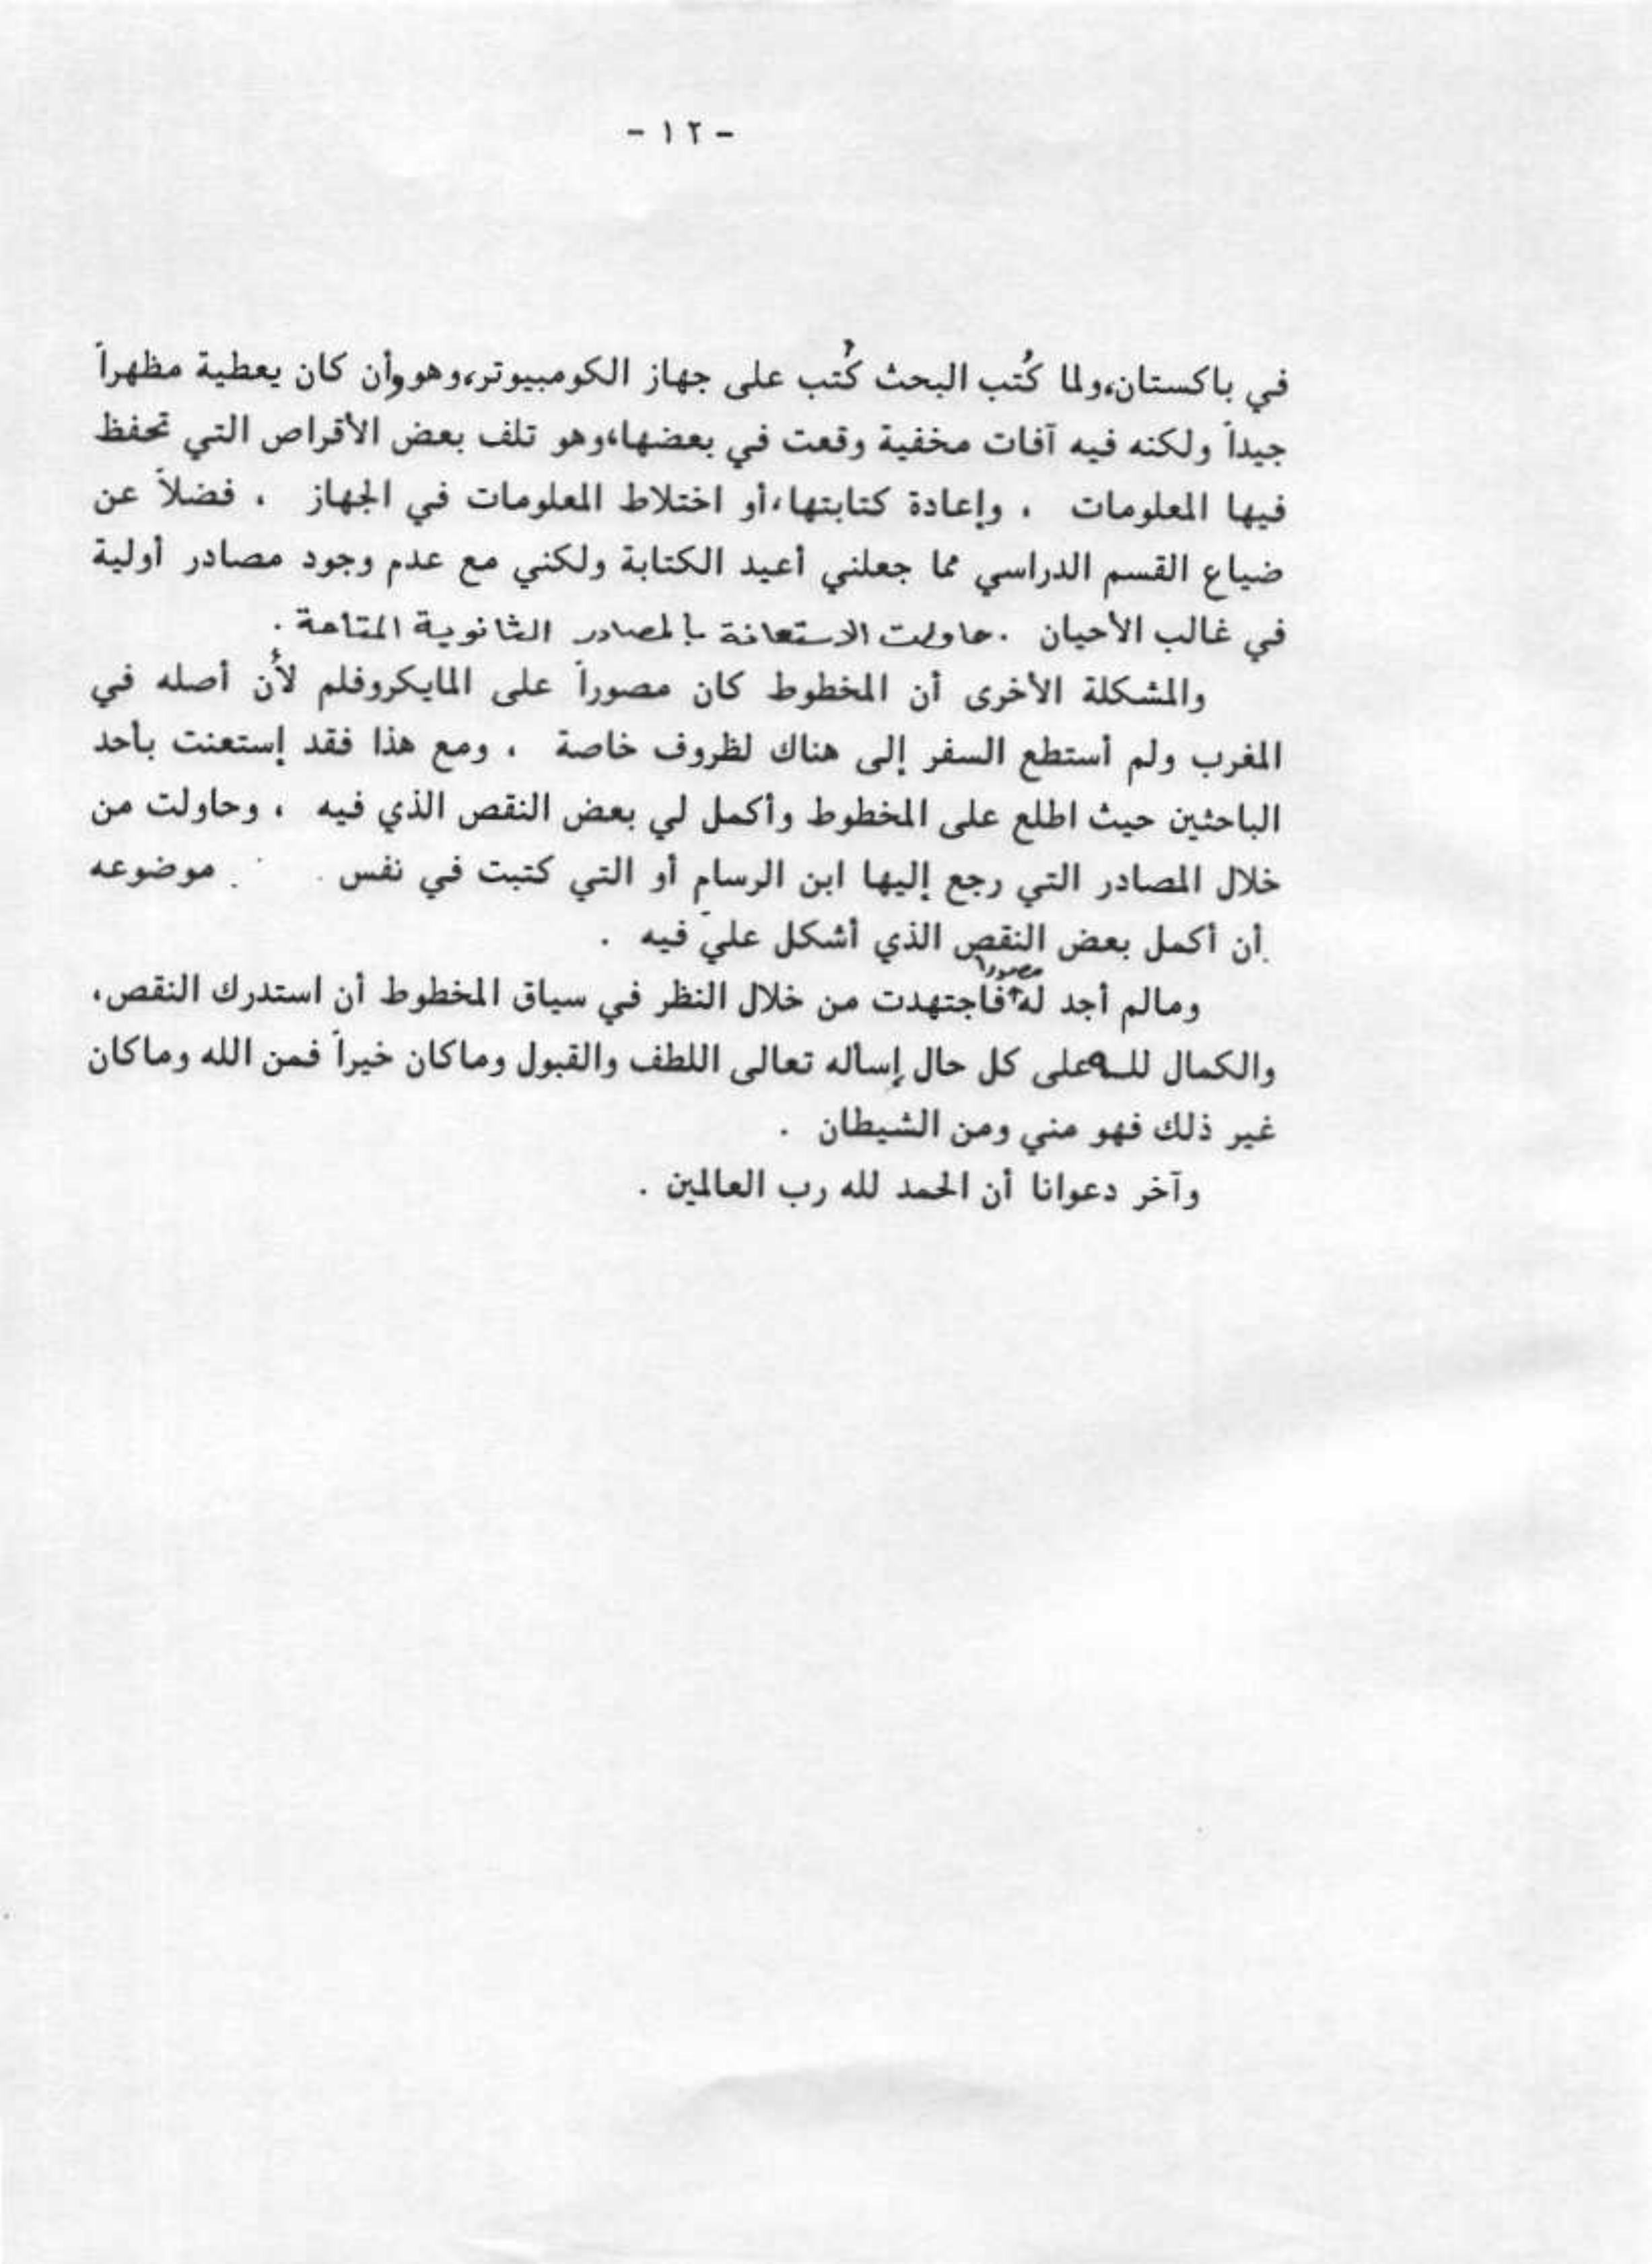 - ١٢ -
في باكستان،ولما كُتب البحث كُتب على جهاز الكومبيوتر،وهووأن كان يعطية مظهراً
جيداً ولكنه فيه آفات مخفية وقعت في بعضها،وهو تلف بعض الأقراص التي تحفظ
فيها المعلومات ، وإعادة كتابتها،أو اختلاط المعلومات في الجهاز ، فضلاً عن
ضياع القسم الدراسي مما جعلني أعيد الكتابة ولكني مع عدم وجود مصادر أولية
في غالب الأحيان . حاولت الاستعانة بالمصادر الثانوية المتاحة .
والمشكلة الأخرى أن المخطوط كان مصوراً على المايكروفلم لأن أصله في
المغرب ولم أستطع السفر إلى هناك لظروف خاصة ، ومع هذا فقد إستعنت بأحد
الباحثين حيث اطلع على المخطوط وأكمل لي بعض النقص الذي فيه ، وحاولت من
خلال المصادر التي رجع إليها ابن الرسام أو التي كتبت في نفس موضوعه
أن أكمل بعض النقص الذي أشكل علي فيه .
ومالم أجد له فاجتهدت من خلال النظر في سياق المخطوط أن استدرك النقص،
والكمال للـه على كل حال إسأله تعالى اللطف والقبول وماكان خيراً فمن الله وماكان
غير ذلك فهو مني ومن الشيطان .
وآخر دعوانا أن الحمد لله رب العالمين .